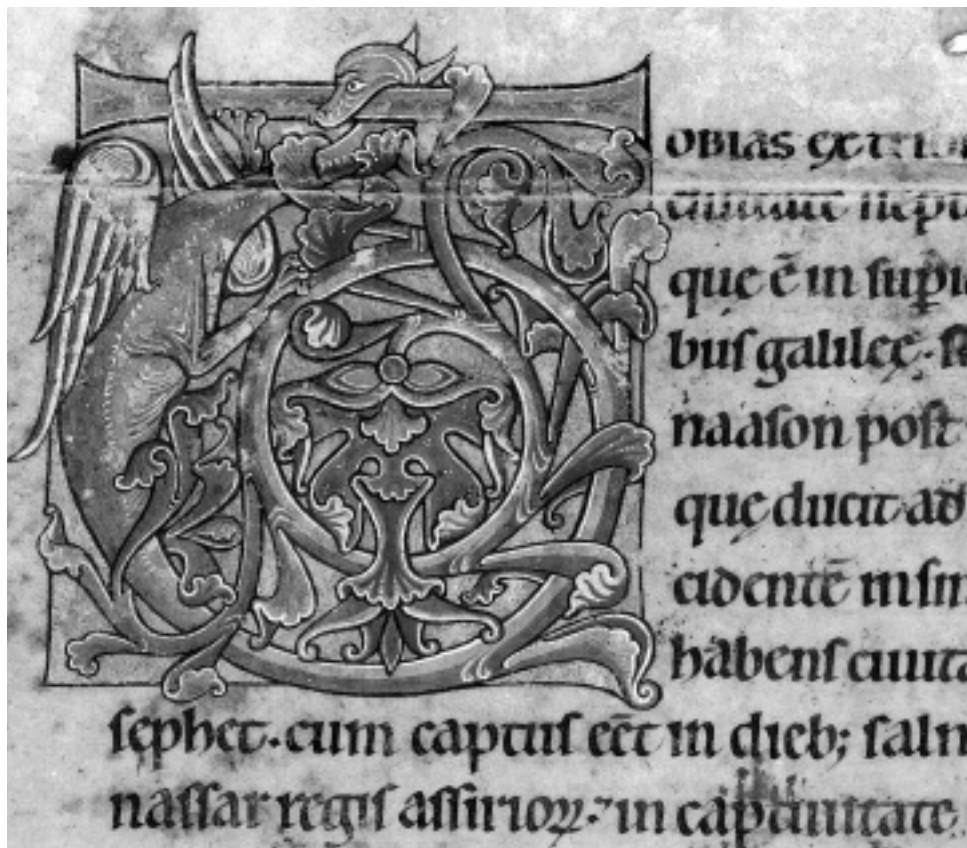 TOBIAS ex tribu
civitate nept
que ē in supi
bus galileę. s
naason post
quę ducit ad
cidentē in sin
habens civita
sephet. cum captus eēt in dieb; salm
nassar regis assirioꝝ. in captivitate